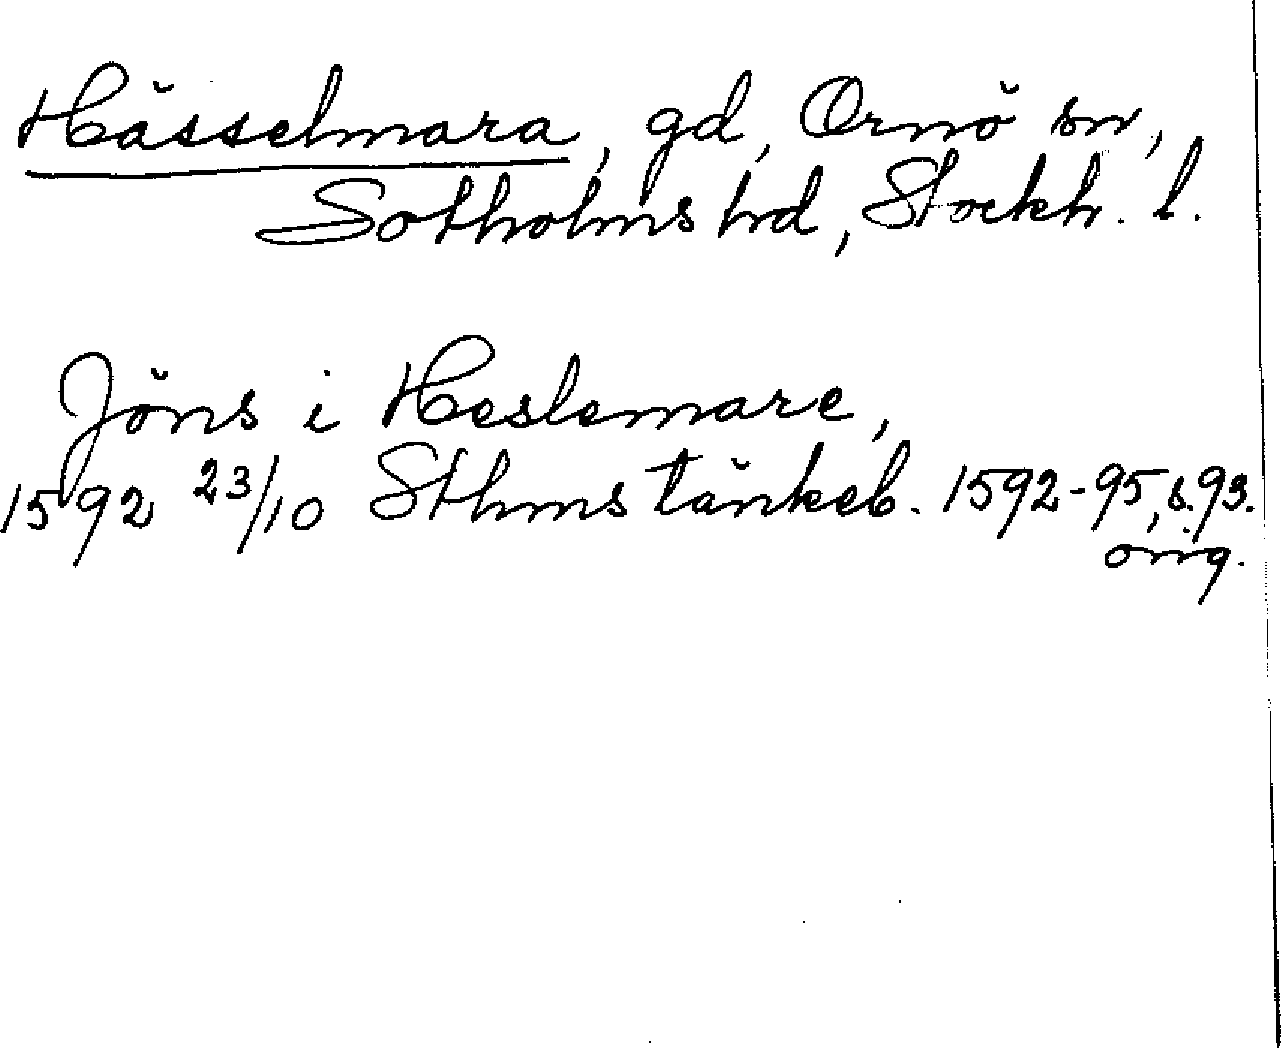 Hässelmara, gd, Ornö sn,
Sotholms hd, Stockh. l.
Jöns i Heslemare,
1592 23/10 Sthms tänkeb. 1592-95, s. 93.
orig.